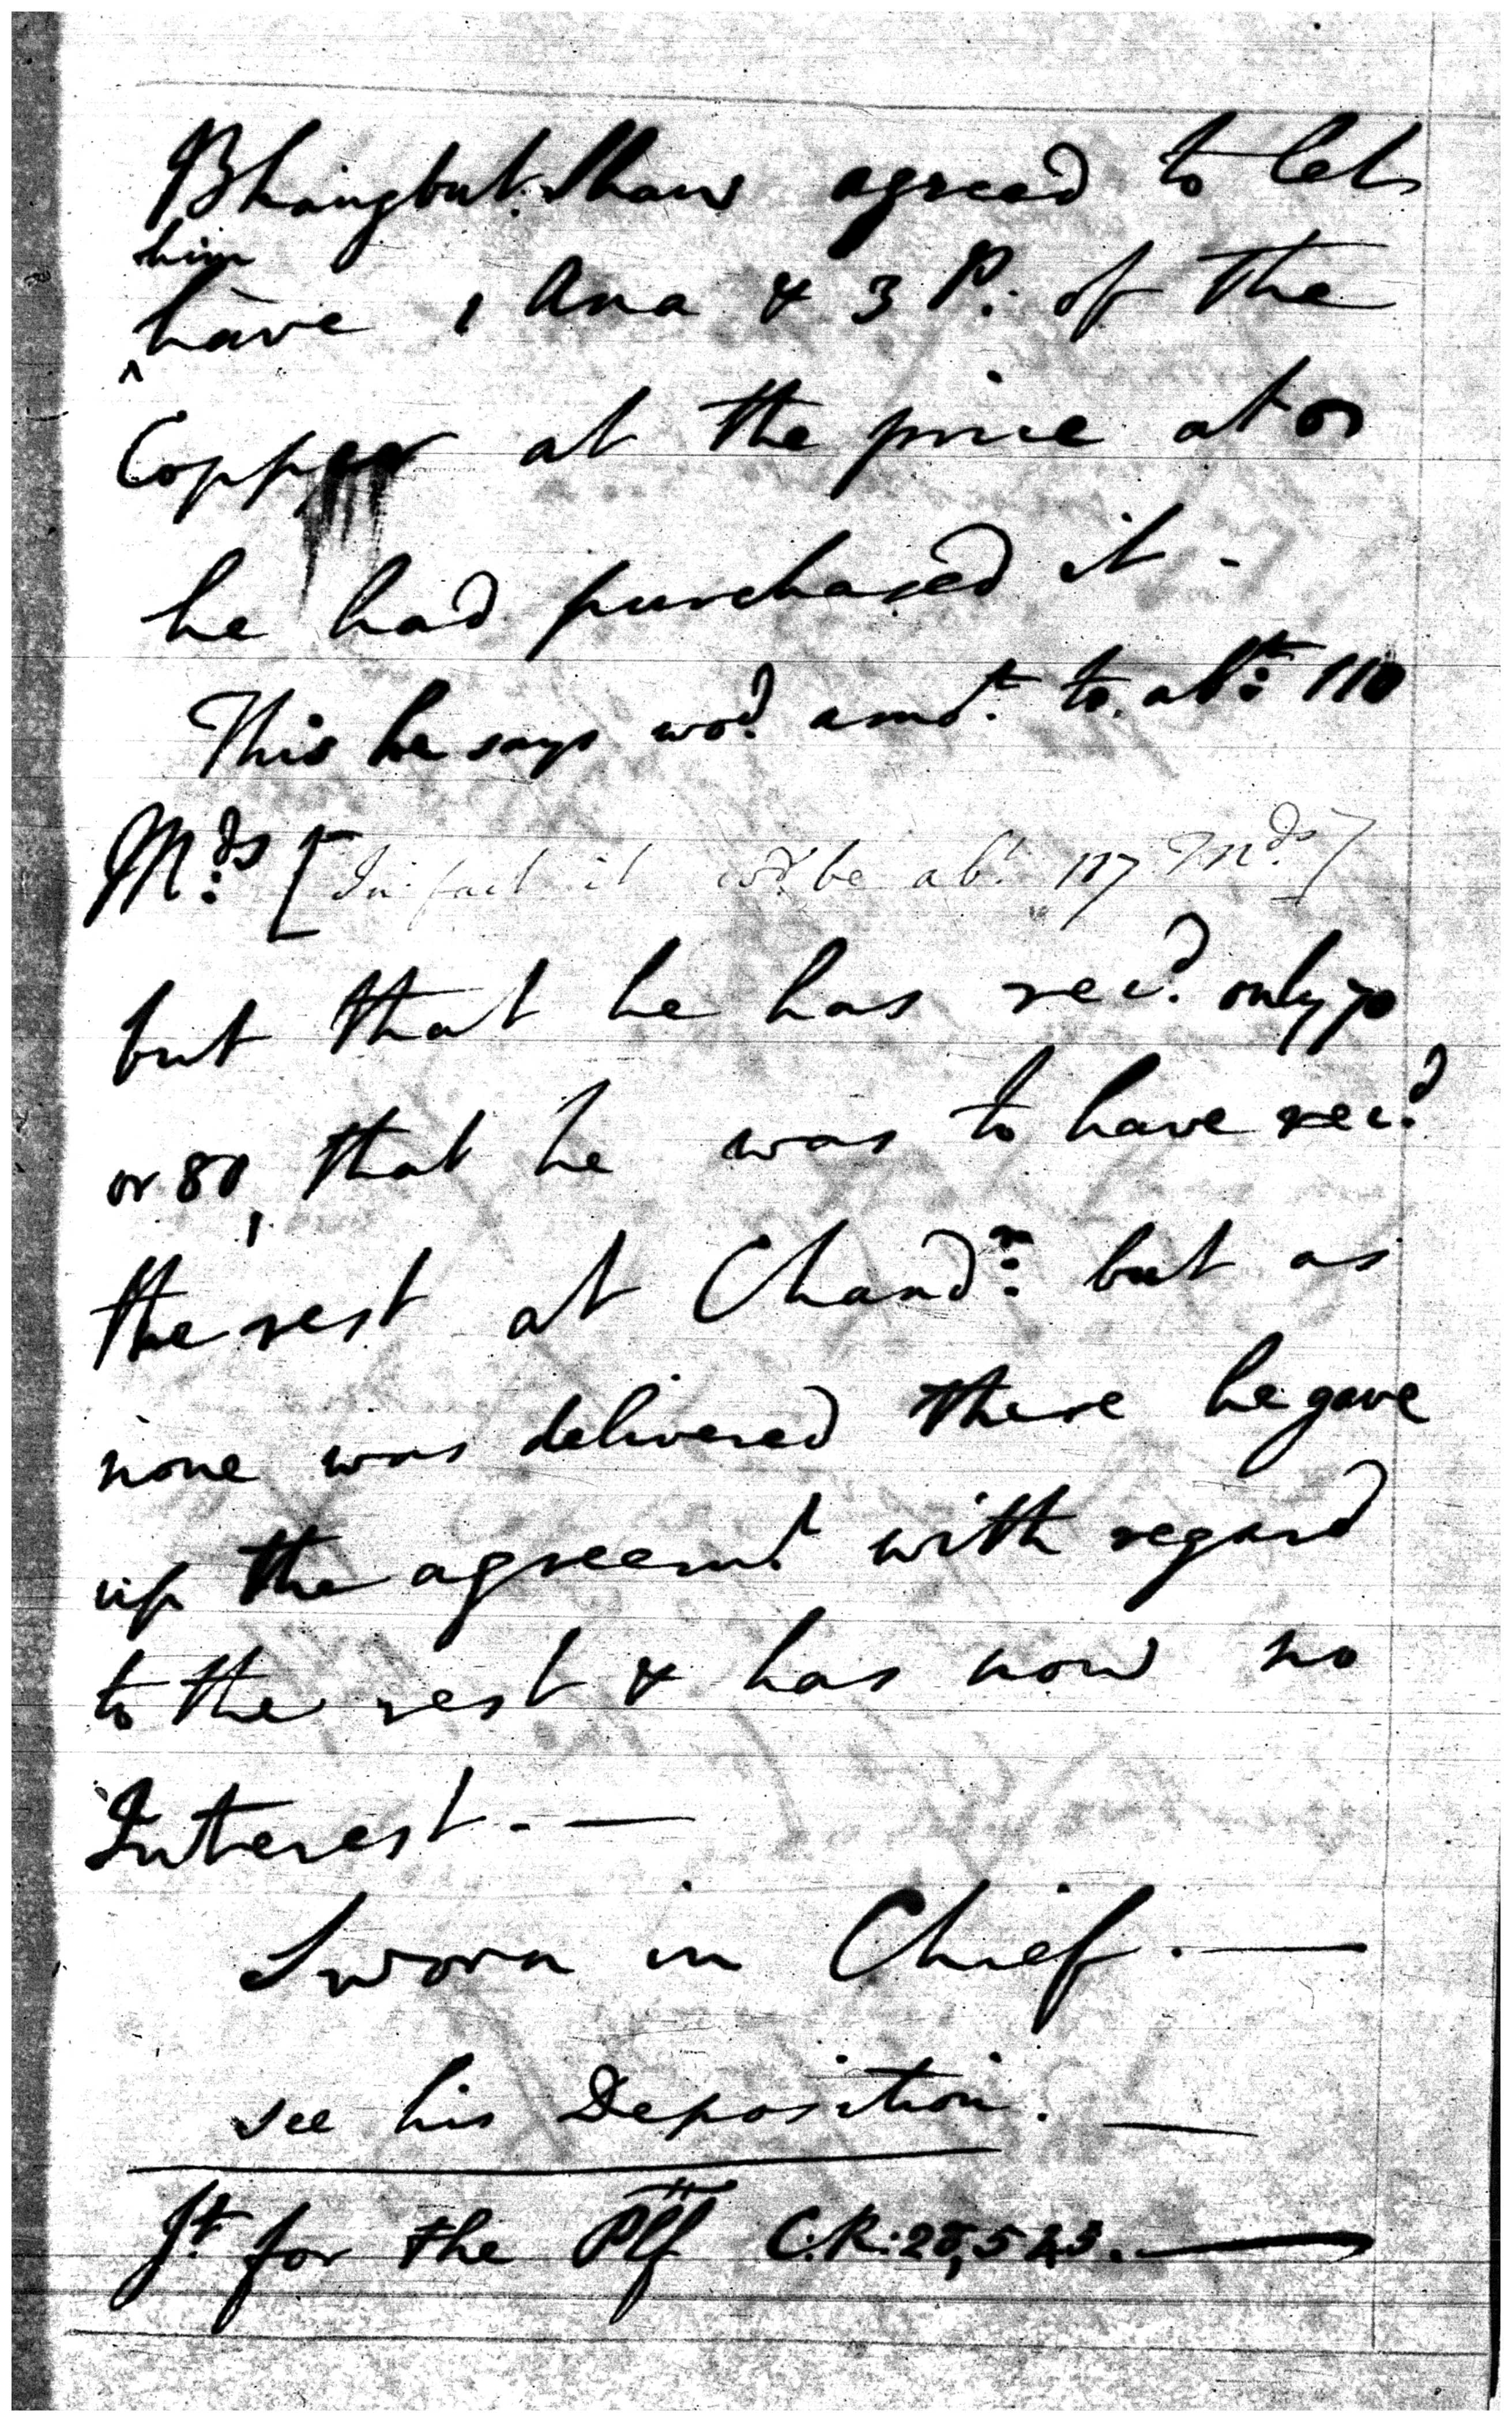 Bhaugbut Shaw agreed to let
him
^have 1 Ana & 3 P: of the
Copper at the price at
he had purchased it -
This he says wod. amot. to abt: 110
Mds: [In fact it wd. be abt. 117 Mds.]
but that he has recd. only 70
or 80, that he was to have recd.
the rest at Chandr: but as
none was delivered there he gave
up the agreemt. with regard
to the rest & has now no
Interest. —
Sworn in Chief. —
see his Deposition. —
Jt. for the Plff C.R: